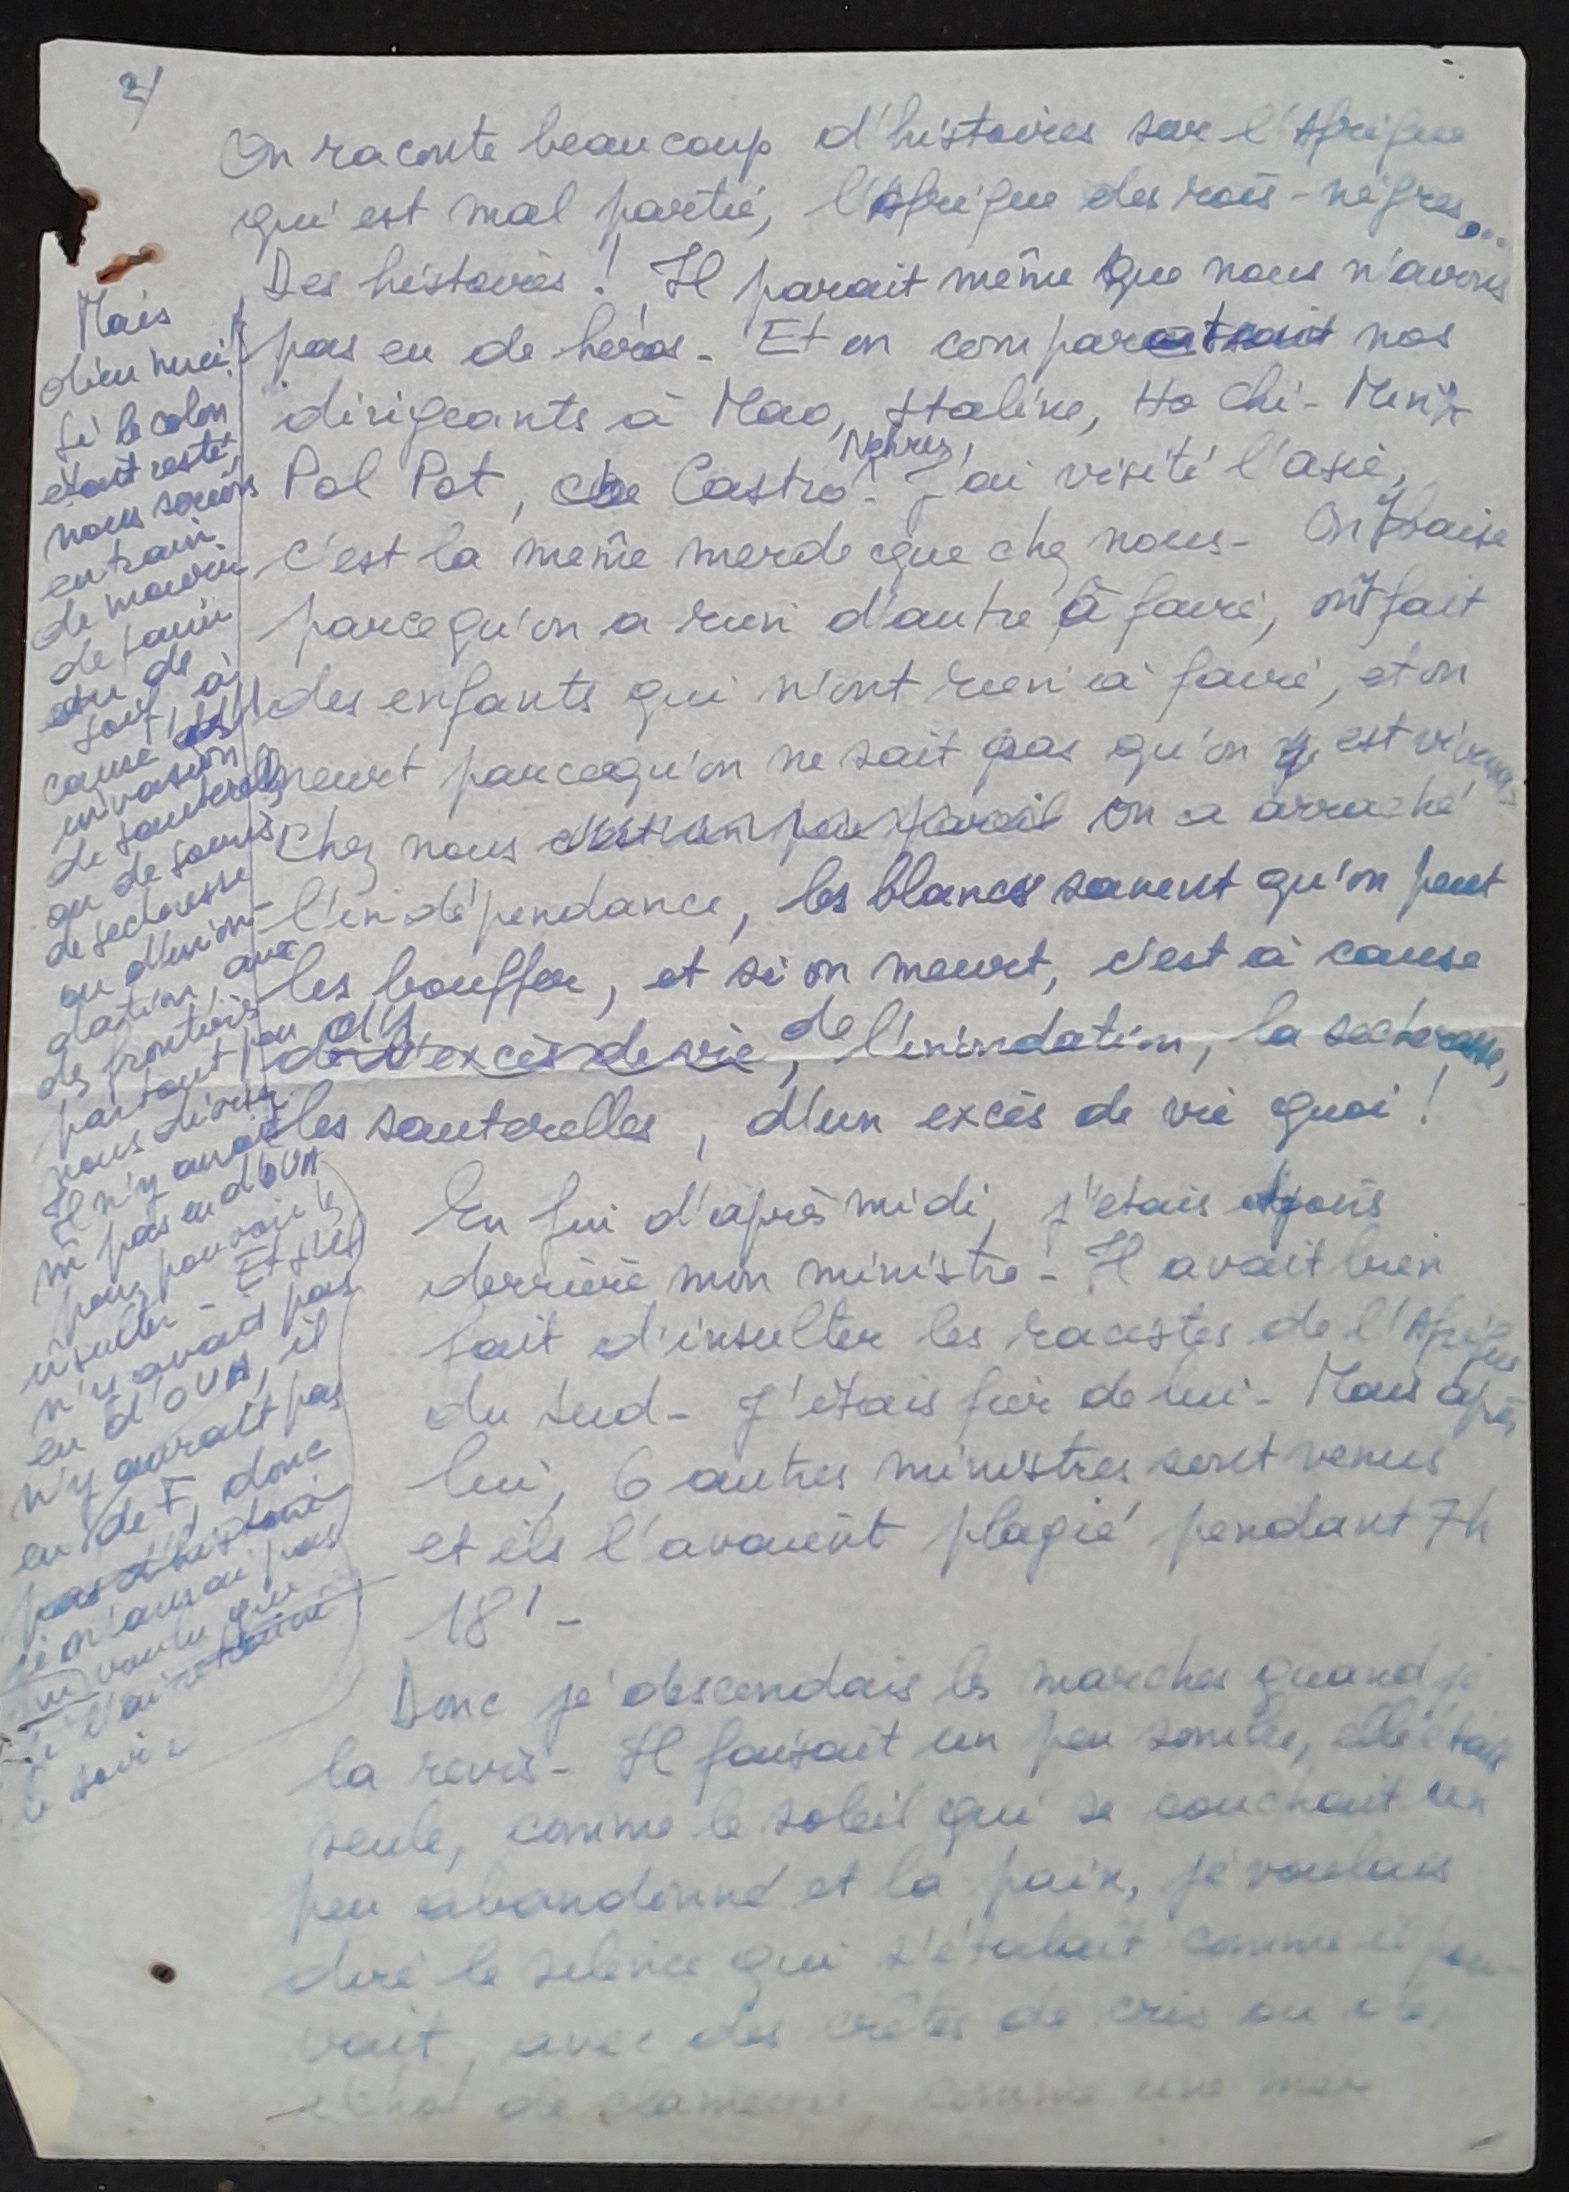 2/
On raconte beaucoup d'histoires sur l'Afrique
qui est mal partie, l'Afrique des rois-nègres...
Des histoires ! Il parait même que nous n'avons
pas eu de héros - Et on comparait nos
dirigeants à Mao, Staline, Ho Chi-Minh
Nehru,
Pol Pot, Castro ! J'ai visité l'asie,
c'est la même merde que chez nous - On y baise
parcequ'on a rien d'autre à faire, on y fait
des enfants qui n'ont rien à faire, et on
meurt parcequ'on ne sait pas qu'on y est vivant
Chez nous c'est un peu pareil on a arraché
l'indépendance, les blancs savent qu'on peut
les bouffer, et si on meurt, c'est à cause
de l'excès de vie, de l'inondation, la sécheresse,
les sauterelles, d'un excès de vie quoi !
En fin d'après midi, j'étais assis
derrière mon ministre - Il avait bien
fait d'insulter les racistes de l'Afrique
du Sud - J'étais fier de lui - Mais après
lui, 6 autres ministres sont venus
et ils l'avaient plagié pendant 7h
18' -
Donc je descendais les marches quand je
la revis - Il faisait un peu sombre, elle était
seule, comme le soleil qui se couchait un
peu abandonné et la paix, je voulais
dire le silence qui s'étalait comme il pou-
vait, avec des crêtes de cris ou de
de clameurs, comme une mer
Mais
dieu merci !
Si le colon
était resté,
nous serions
en train
de mourir
de faim
ou de
soif, à
cause
invasion
de sauterelles
ou de souris
de secheresse
ou d'inon-
dation, avec
des frontières
partout pour
nous diviser
Il n'y aurait
même pas eu d'OUA
pour pouvoir les
insulter - Et s'il
n'y avait pas
eu d'OUA, il
n'y aurait pas
eu de F, donc
pas d'histoire
je n'aurai pas
voulu que
je l'ai
le soir